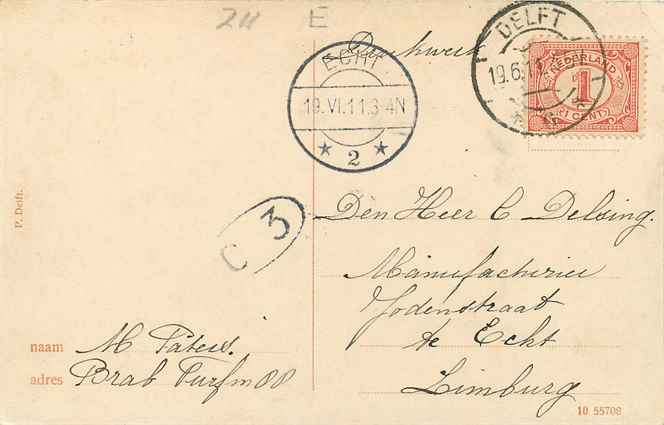 2 11 E
Drukwerk
DELFT
19.6.11
NEDERLAND
1
CENT
ECHT
19.VI.11.3-4N
2
C 3
P. Delft.
Den Heer C Delsing.
Manufacturier
Jodenstraat
te Echt
Limburg
naam M Paters.
adres Brab Turfm 88
10 55708